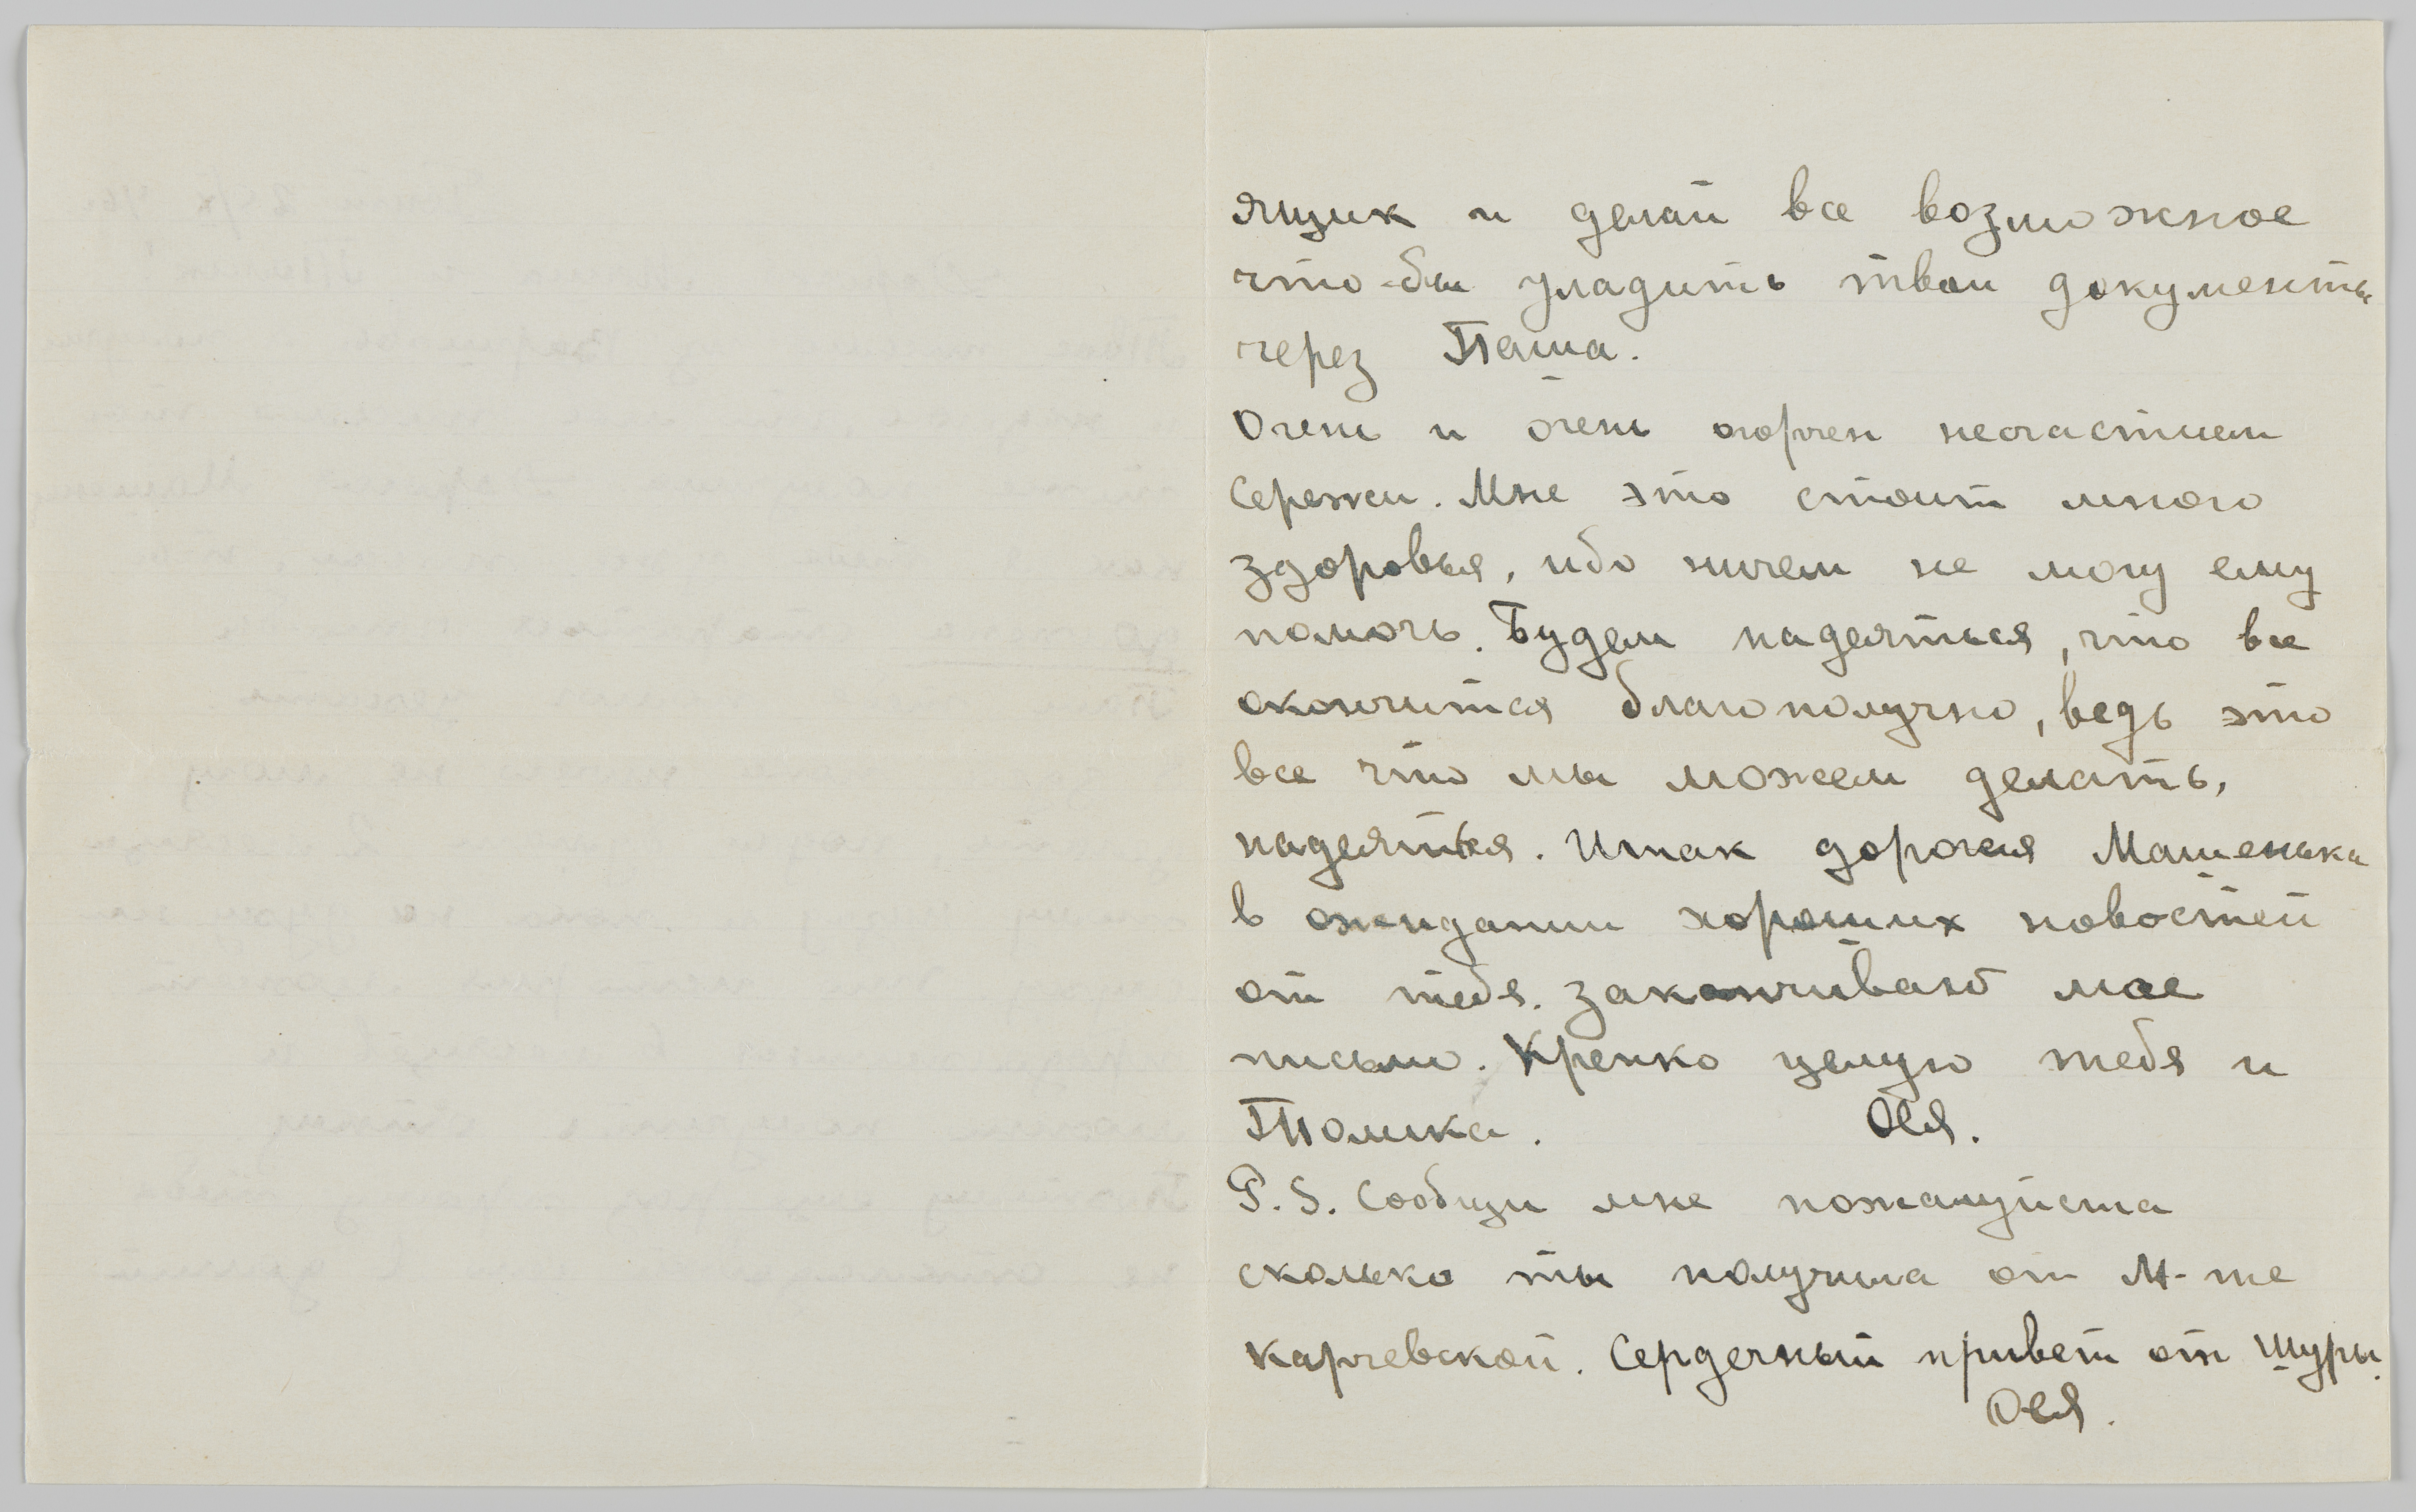 ящик и делай все возможное
что-бы уладить твои документы
через Паша.
Очень и очень огорчен несчастием
Сережи. Мне это стоит много
здоровья, ибо ничем не могу ему
помочь. Будем надеяться, что все
окончится благополучно, ведь это
все что мы можем делать,
надеяться. Итак дорогая Машенька
в ожидании хороших новостей
от тебя. Заканчиваю мое
письмо. Крепко целую тебя и
Толика. Ося.
P.S. Сообщи мне пожалуйста
сколько ты получила от М-me
Карчевской. Сердечный привет от Шуры.
Ося.